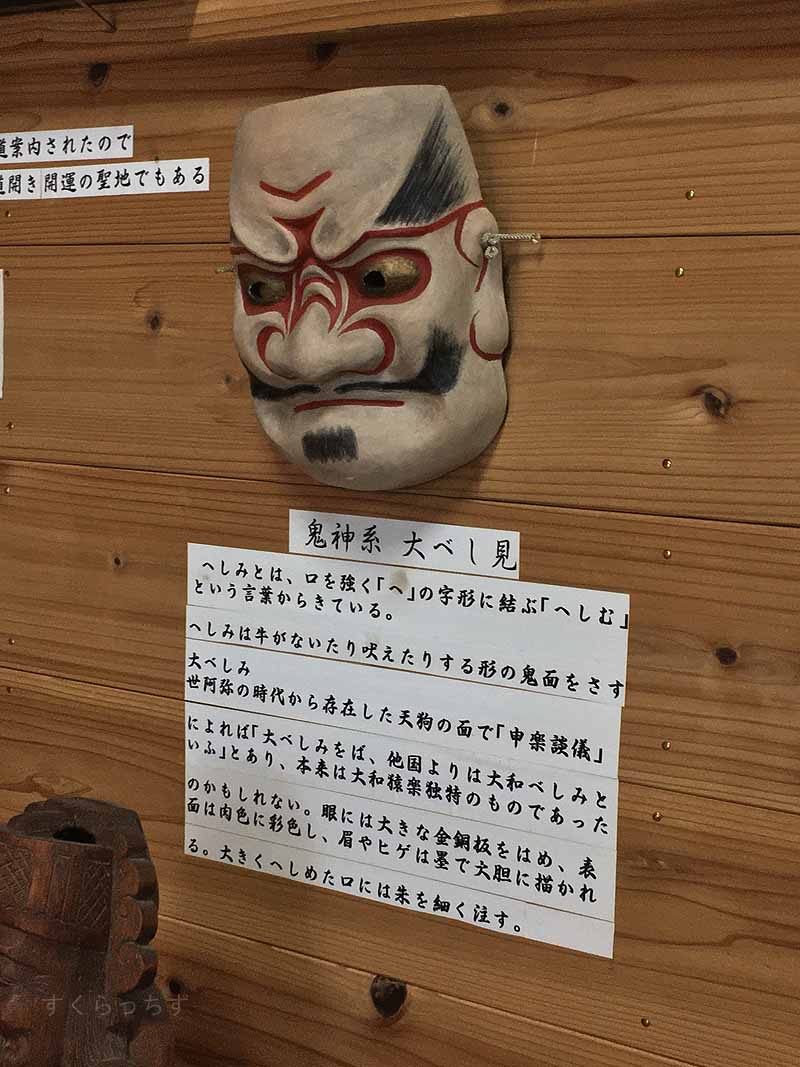 道案内されたので
道開き開運の聖地でもある
鬼神系 大べし見
へしみとは、口を強く「へ」の字形に結ぶ「へしむ」
という言葉からきている。
へしみは牛がないたり吠えたりする形の鬼面をさす
大べしみ
世阿弥の時代から存在した天狗の面で「申楽談儀」
によれば「大べしみをば、他国よりは大和べしみと
いふ」とあり、本来は大和猿楽独特のものであった
のかもしれない。眼には大きな金銅板をはめ、表
面は肉色に彩色し、眉やヒゲは墨で大胆に描かれ
る。大きくへしめた口には朱を細く注す。
すくらっちず